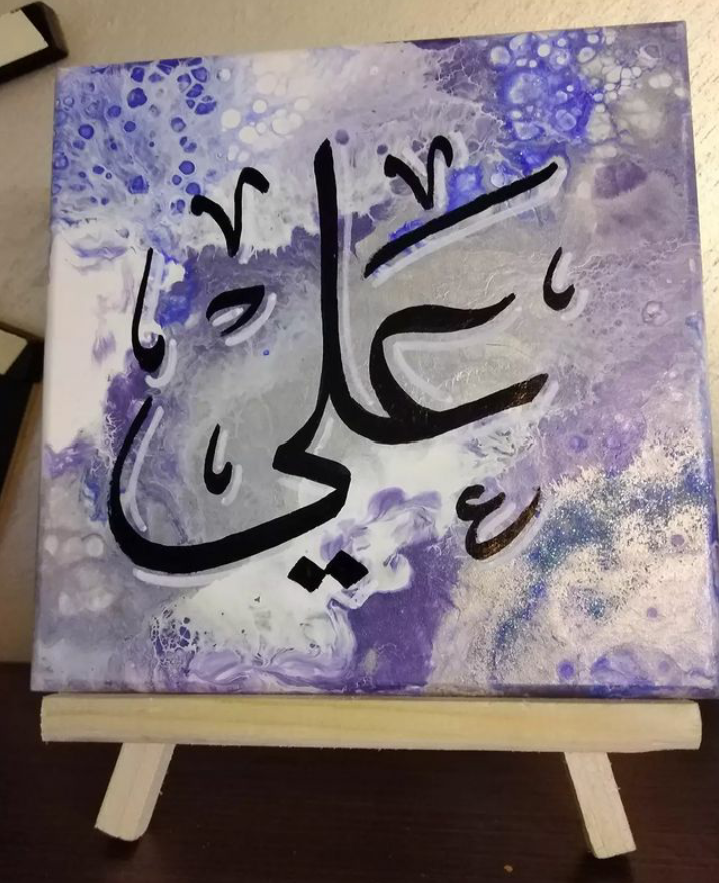 علي